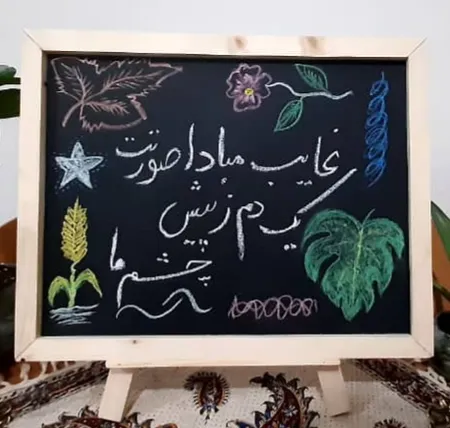 غایب مبادا صورتت
یک دم ز پیش
چشم ما